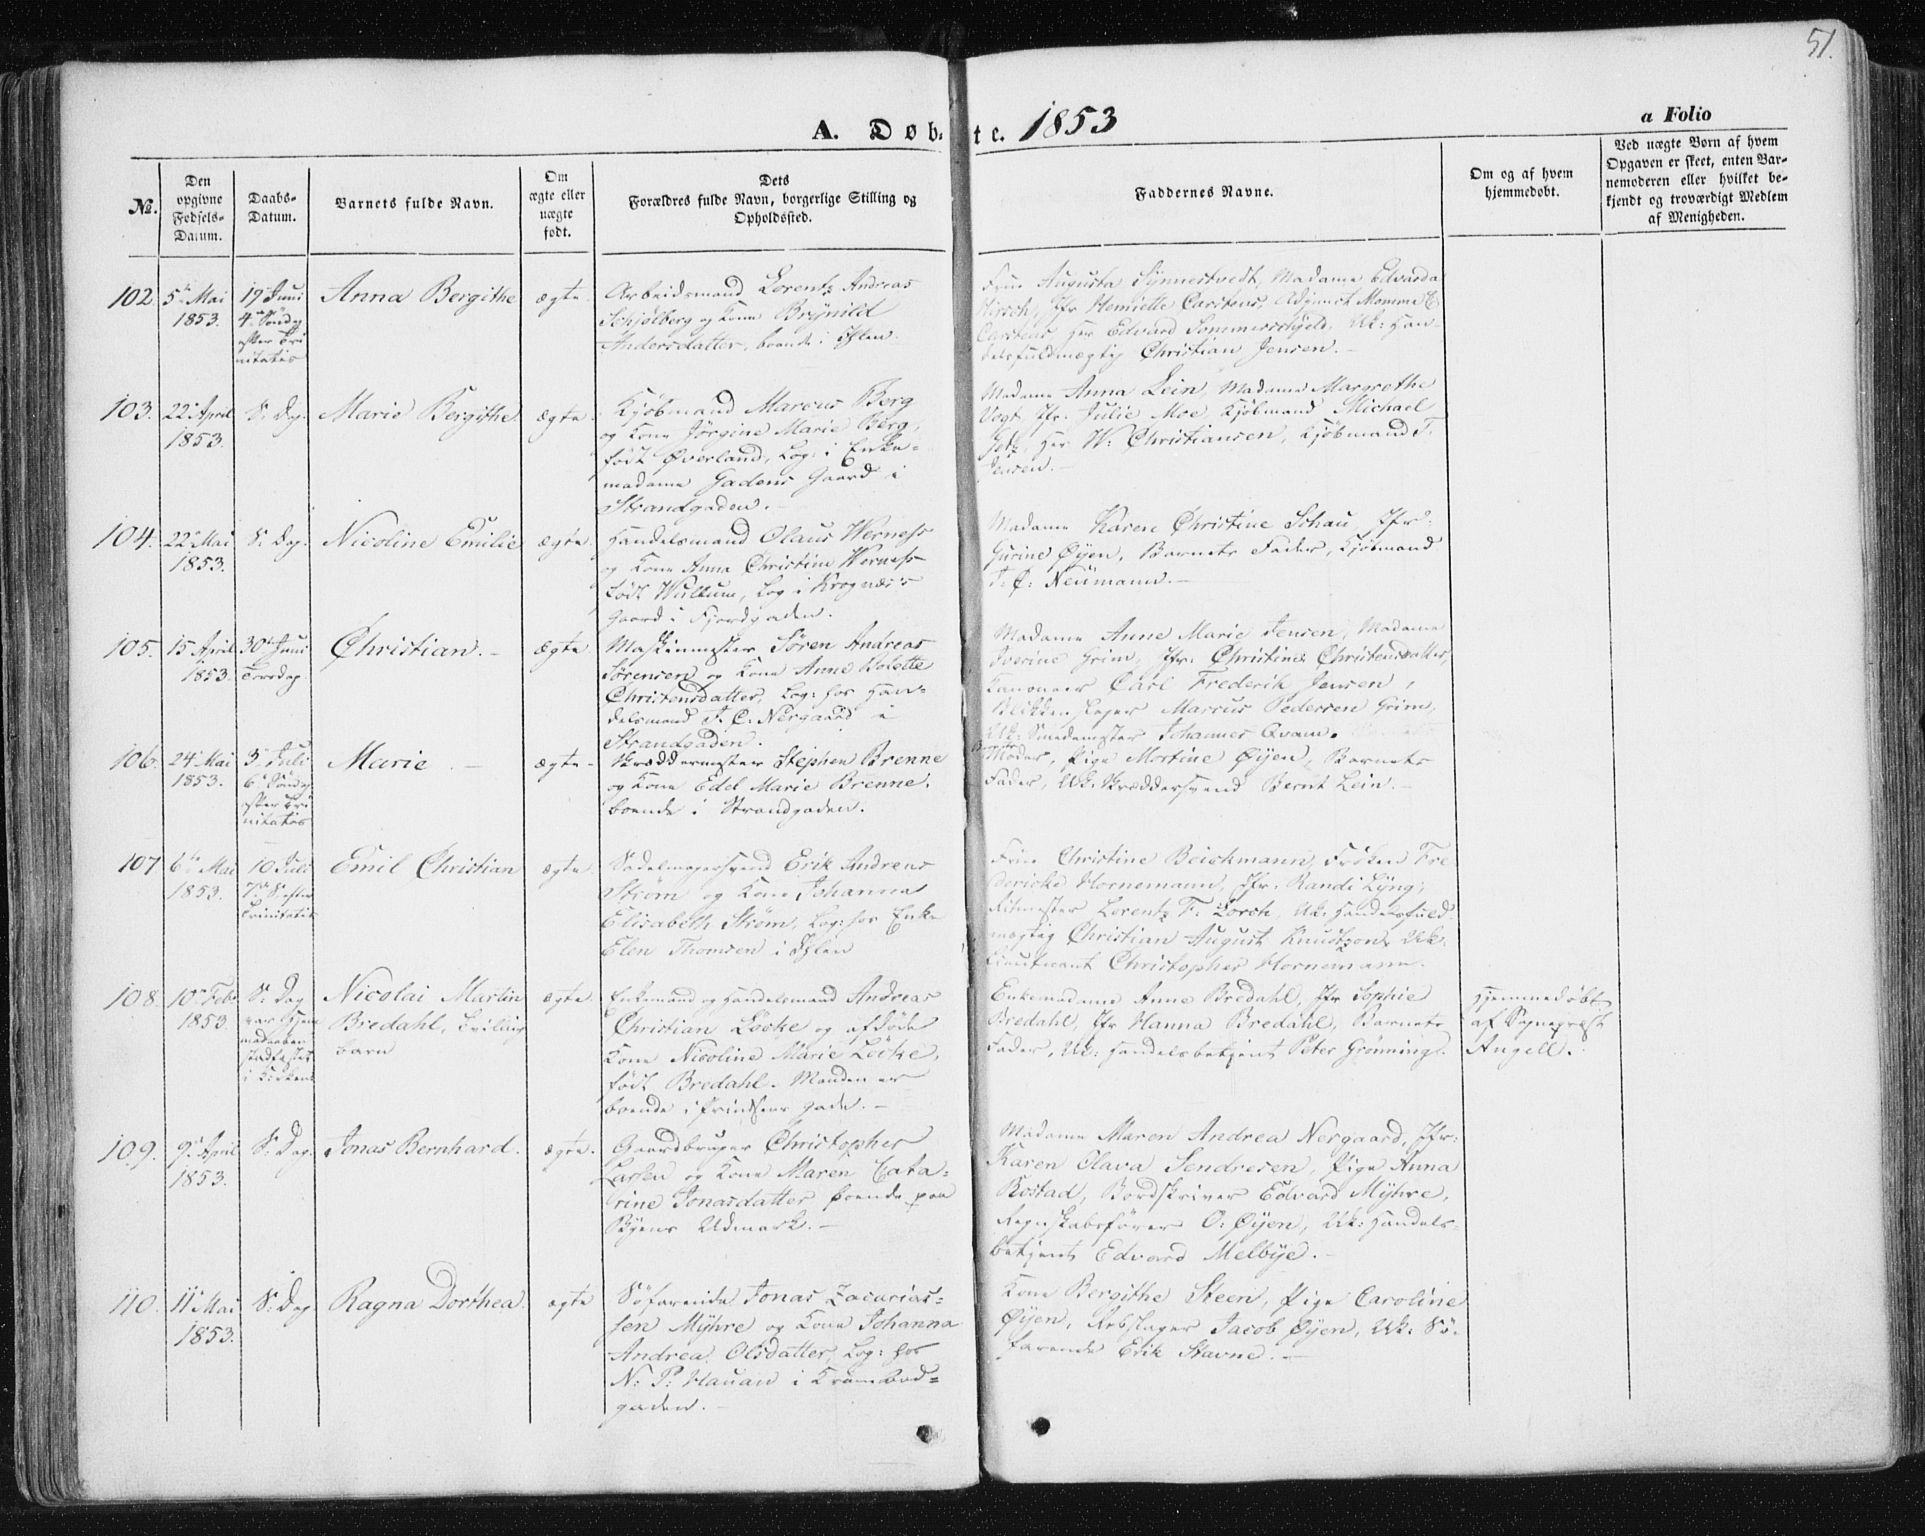 51.
A. Døbte. 1853
a Folio
No.
Den opgivne Fødsels-Datum.
Daabs-Datum.
Barnets fulde Navn.
Om ægte eller uægte født.
Dets Forældres fulde Navn, borgerlige Stilling og Opholdssted.
Faddernes Navne.
Om og af hvem hjemmedøbt.
Ved uægte Børn af hvem Opgaven er skeet, enten Barnemoderen eller hvilket bekjendt og troværdigt Medlem af Menigheden.
102 5te Mai 1853. 19 Juni 4de Søndag efter Trinitatis Anna Bergithe ægte.
Arbeidsmand Lorentz Andreas
Schjølberg og Kone Brynild
Andersdatter, boende i Ihlen.
Frue Augusta Synnestvedt, Madame Edvarda
Hirsch, Jfr Henriette Carstens, Adjunct Momme C
Carstens, Her Edvard Sommerschjeld, Uk: Han-
delsfuldmægtig Christian Jensen.
103. 22 April 1853. S: Dag. Marie Bergithe. ægte.
Kjøbmand Marcus Berg
og Kone Jørgine Marie Berg,
født Øverland, Log: i Enke-
madame Gadens Gaard i
Strandgaden.
Madame Anna Lein, Madame Margrethe
Vogt, Jfr: Julie Moe, Kjøbmand Michael
Her W: Christiansen, Kjøbmand T.
Jensen.
104. 22 Mai 1853. S: Dag. Nicoline Emilie ægte.
Handelsmand Olaus Werness
og Kone Anna Christine Werness
født Wullum, Log i Krognæs's
Gaard i Fjordgaden.
Madame Karen Christine Schau, Jfr:
Gurine Øyen, Barnets Fader, Kjøbmand
Neumann.
105. 15 April 1853. 30te Juni Torsdag Christian. ægte
Maskinmester Søren Andreas
Sørensen og Kone Anne Bolette
Christensdatter, Log: hos Han-
delsmand J. C: Nergaard i
Strandgaden.
Madame Anne Marie Jensen, Madame
Iverine Grim, Jfr: Christine Christensdatter,
Kanoneer Carl Frederik Jensen,
Blikkenslager Marcus Pedersen Grim,
Uk: Smedemester Johannes Qvam.
106. 24 Mai 1853. 3 Juli 6te Søndag efter Trinitatis Marie ægte
Skræddermester Stephen Brenne
og Kone Edel Marie Brenne,
boende i Strandgaden.
Moder, Pige Mortine Øyen, Barnets
Fader, Uk: Skræddersvend Bernt Lein.
107 6te Mai 1853. 10 Juli 7de S. efter Trinitatis Emil Christian ægte
Sadelmagersvend Erik Andreas
Strøm og Kone Johanna
Elisabeth Strøm, Log: hos Enke
Elen Thomsen i Ihlen
Frue Christine Beichmann, Frøken Fre
dericke Hornemann, Jfr. Randi Lyng,
Ritmester Lorentz F: Lorch, Uk: Handelsfuld-
mægtig Christian August Knudtzon, Uk:
Lieutnant Christopher Hornemann.
108. 10 Feb: 1853 S: Dag Nicolai Martin
Bredahl, Tvilling
barn ægte
Enkemand og Handelsmand Andreas
Christian Löcke og afdøde
Kone Nicoline Marie Löcke,
født Bredahl. Manden er
boende i Prindsens gade.
Enkemadame Anne Bredahl, Jfr Sophie
Bredahl, Jfr Hanna Bredahl, Barnets
Fader, Uk: Handelsbetjent Peter Grønning.
Hjemmedøbt
af Sognepræst
Angell.
109. 9 April 1853. S: Dag. Jonas Bernhard. ægte.
Gaardbruger Christopher
Larsen og Kone Maren Cata-
rine Jonasdatter boende paa
Byens Udmark.
Madame Maren Andrea Nergaard, Jfr:
Karen Olava Sendresen, Pige Anna
Rostad, Bordskriver Edvard Myhre,
Regnskabsfører O: Øyen, Uk: Handels-
betjent Edvard Melbye.
110. 11 Mai 1853. S: Dag Ragna Dorthea. ægte
Søfarende Jonas Zacarias-
sen Myhre og Kone Johanna
Andrea Olsdatter, Log: hos
N: P: Hauan i Krambod-
gaden.
Kone Bergithe Steen, Pige Caroline
Øyen, Rebslager Jacob Øyen, Uk: Sø-
farende Erik Stavne.